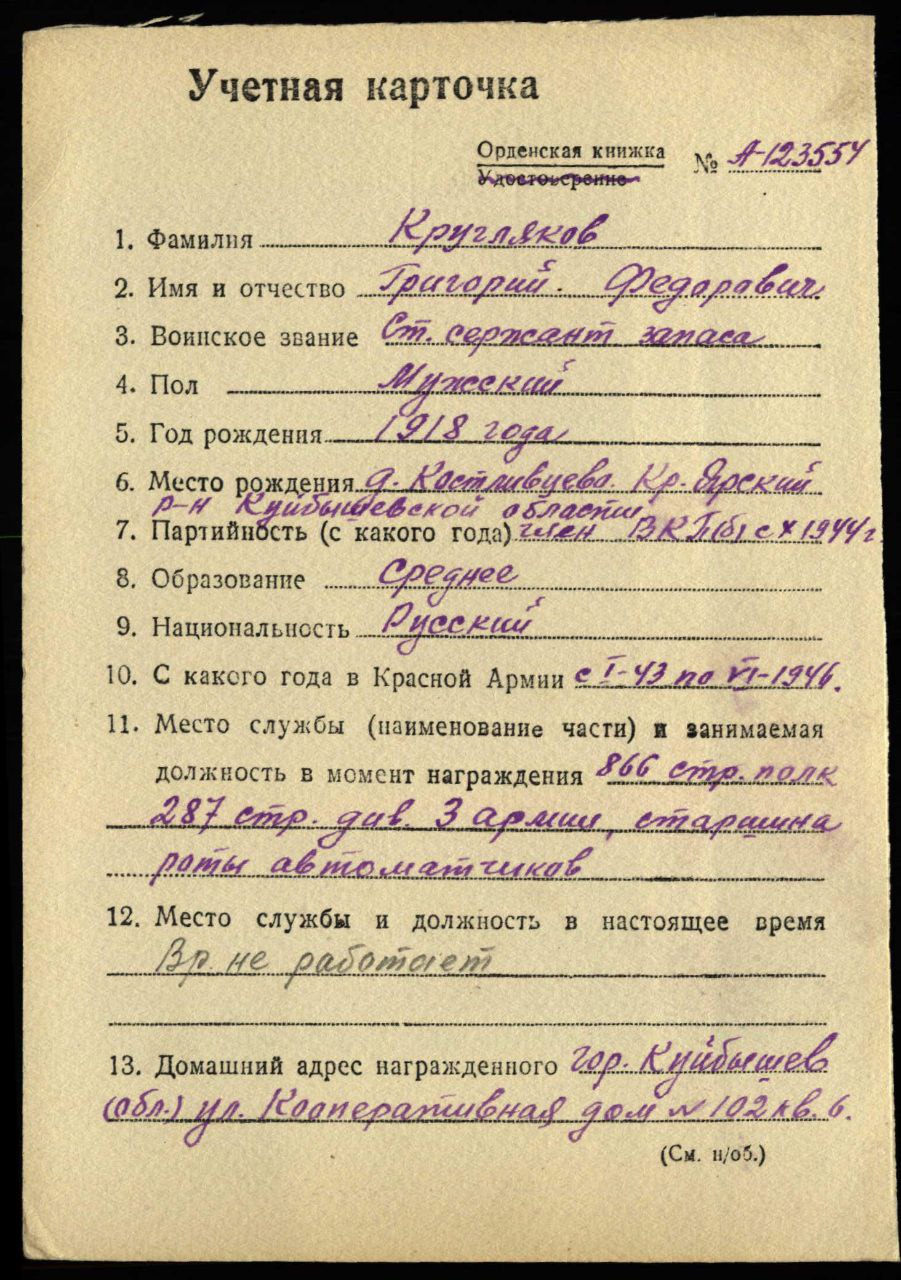 Учетная карточка
Орденская книжка
Удостоверение
№ А-123554
1. Фамилия Кругляков
2. Имя и отчество Григорий. Федорович
3. Воинское звание Ст. сержант запаса
4. Пол Мужской
5. Год рождения 1918 года
6. Место рождения д. Костливцево. Кр. Ярский
р-н Куйбышевской области
7. Партийность (с какого года) член ВКП(б) с X 1944 г
8. Образование Среднее
9. Национальность Русский
10. С какого года в Красной Армии с I-43 по VI-1946.
11. Место службы (наименование части) и занимаемая
должность в момент награждения 866 стр. полк
287 стр. див. 3 армии, старшина
роты автоматчиков
12. Место службы и должность в настоящее время
Вр. не работает
13. Домашний адрес награжденного гор. Куйбышев
(обл.) ул. Кооперативная дом № 102 кв. 6.
(См. н/об.)